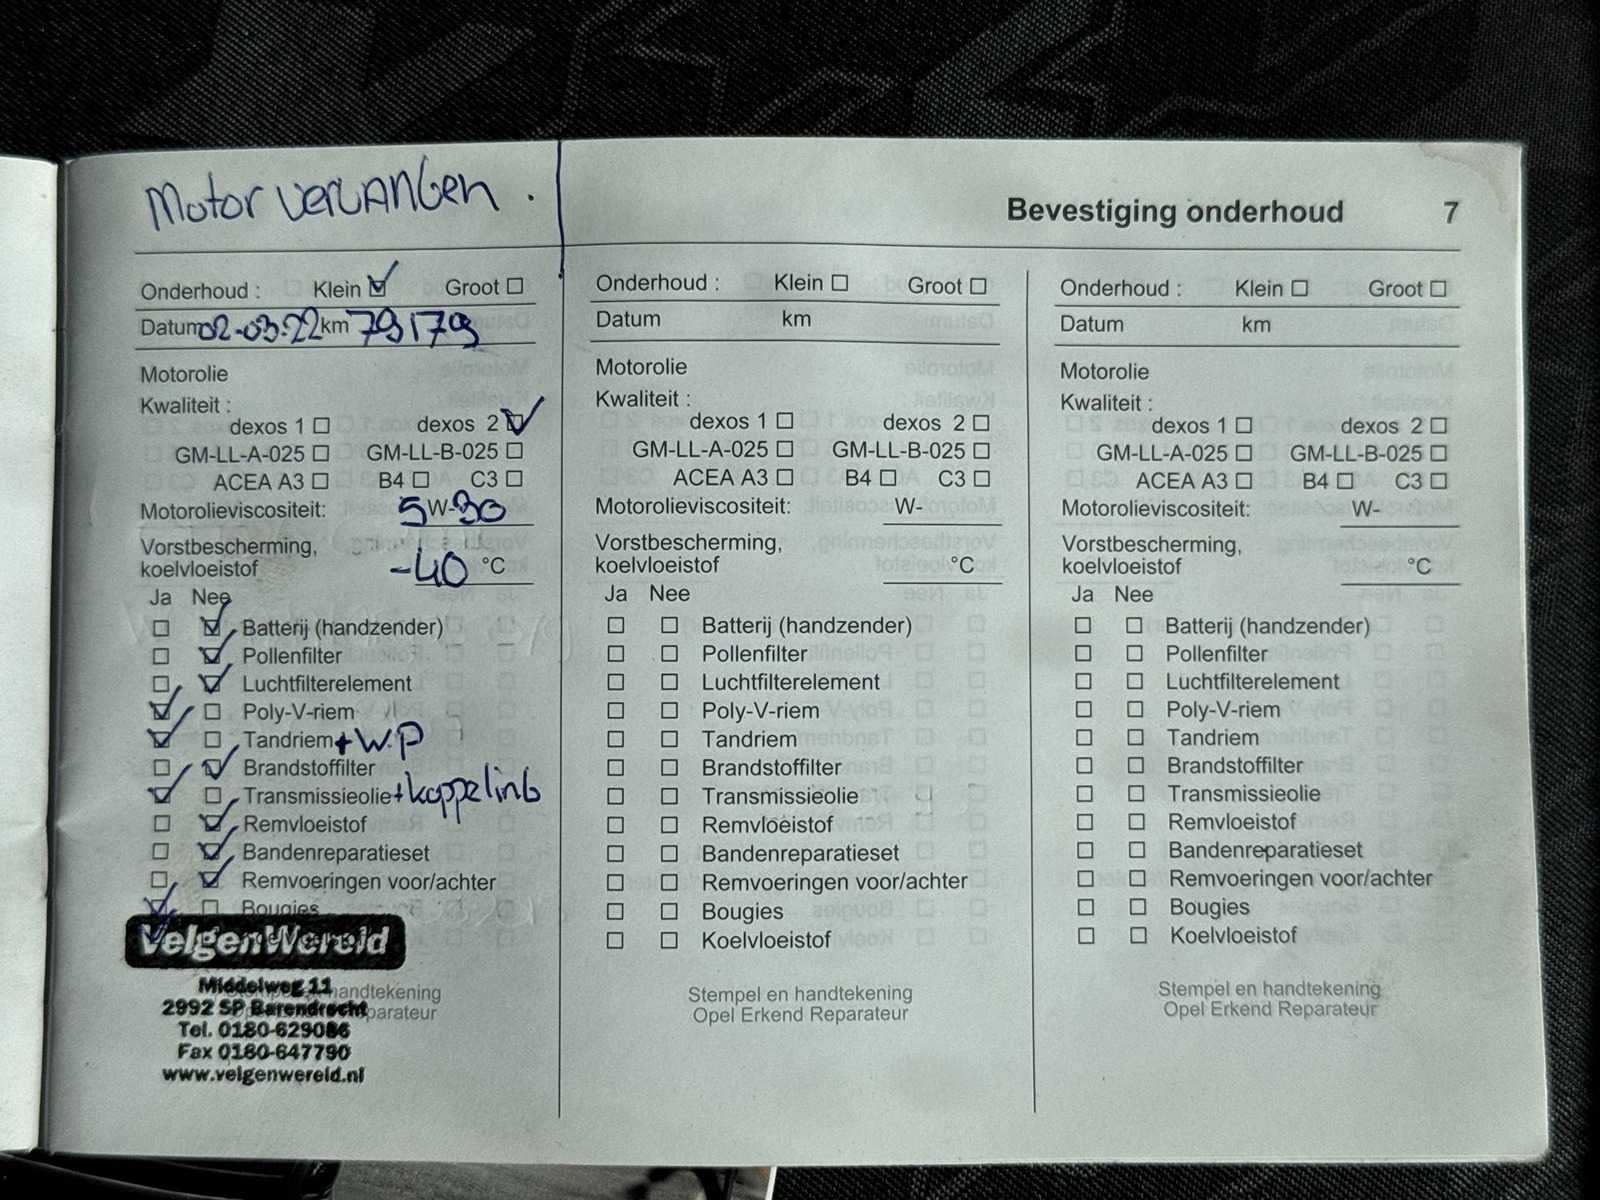 Motor vervangen.
Bevestiging onderhoud 7
Onderhoud : Klein Groot
Datum 02-03-22 km 79179
Motorolie
Kwaliteit :
dexos 1 dexos 2
GM-LL-A-025 GM-LL-B-025
ACEA A3 B4 C3
Motorolieviscositeit: 5W-30
Vorstbescherming,
koelvloeistof -40 °C
Ja Nee
Batterij (handzender)
Pollenfilter
Luchtfilterelement
Poly-V-riem
Tandriem + W.P
Brandstoffilter
Transmissieolie + koppeling
Remvloeistof
Bandenreparatieset
Remvoeringen voor/achter
Bougies
VelgenWereld
Middelweg 11
2992 SP Barendrecht
Tel. 0180-629086
Fax 0180-647790
www.velgenwereld.nl
Stempel en handtekening
Reparateur
Onderhoud : Klein Groot
Datum km
Motorolie
Kwaliteit :
dexos 1 dexos 2
GM-LL-A-025 GM-LL-B-025
ACEA A3 B4 C3
Motorolieviscositeit: W-
Vorstbescherming,
koelvloeistof °C
Ja Nee
Batterij (handzender)
Pollenfilter
Luchtfilterelement
Poly-V-riem
Tandriem
Brandstoffilter
Transmissieolie
Remvloeistof
Bandenreparatieset
Remvoeringen voor/achter
Bougies
Koelvloeistof
Stempel en handtekening
Opel Erkend Reparateur
Onderhoud : Klein Groot
Datum km
Motorolie
Kwaliteit :
dexos 1 dexos 2
GM-LL-A-025 GM-LL-B-025
ACEA A3 B4 C3
Motorolieviscositeit: W-
Vorstbescherming,
koelvloeistof °C
Ja Nee
Batterij (handzender)
Pollenfilter
Luchtfilterelement
Poly-V-riem
Tandriem
Brandstoffilter
Transmissieolie
Remvloeistof
Bandenreparatieset
Remvoeringen voor/achter
Bougies
Koelvloeistof
Stempel en handtekening
Opel Erkend Reparateur